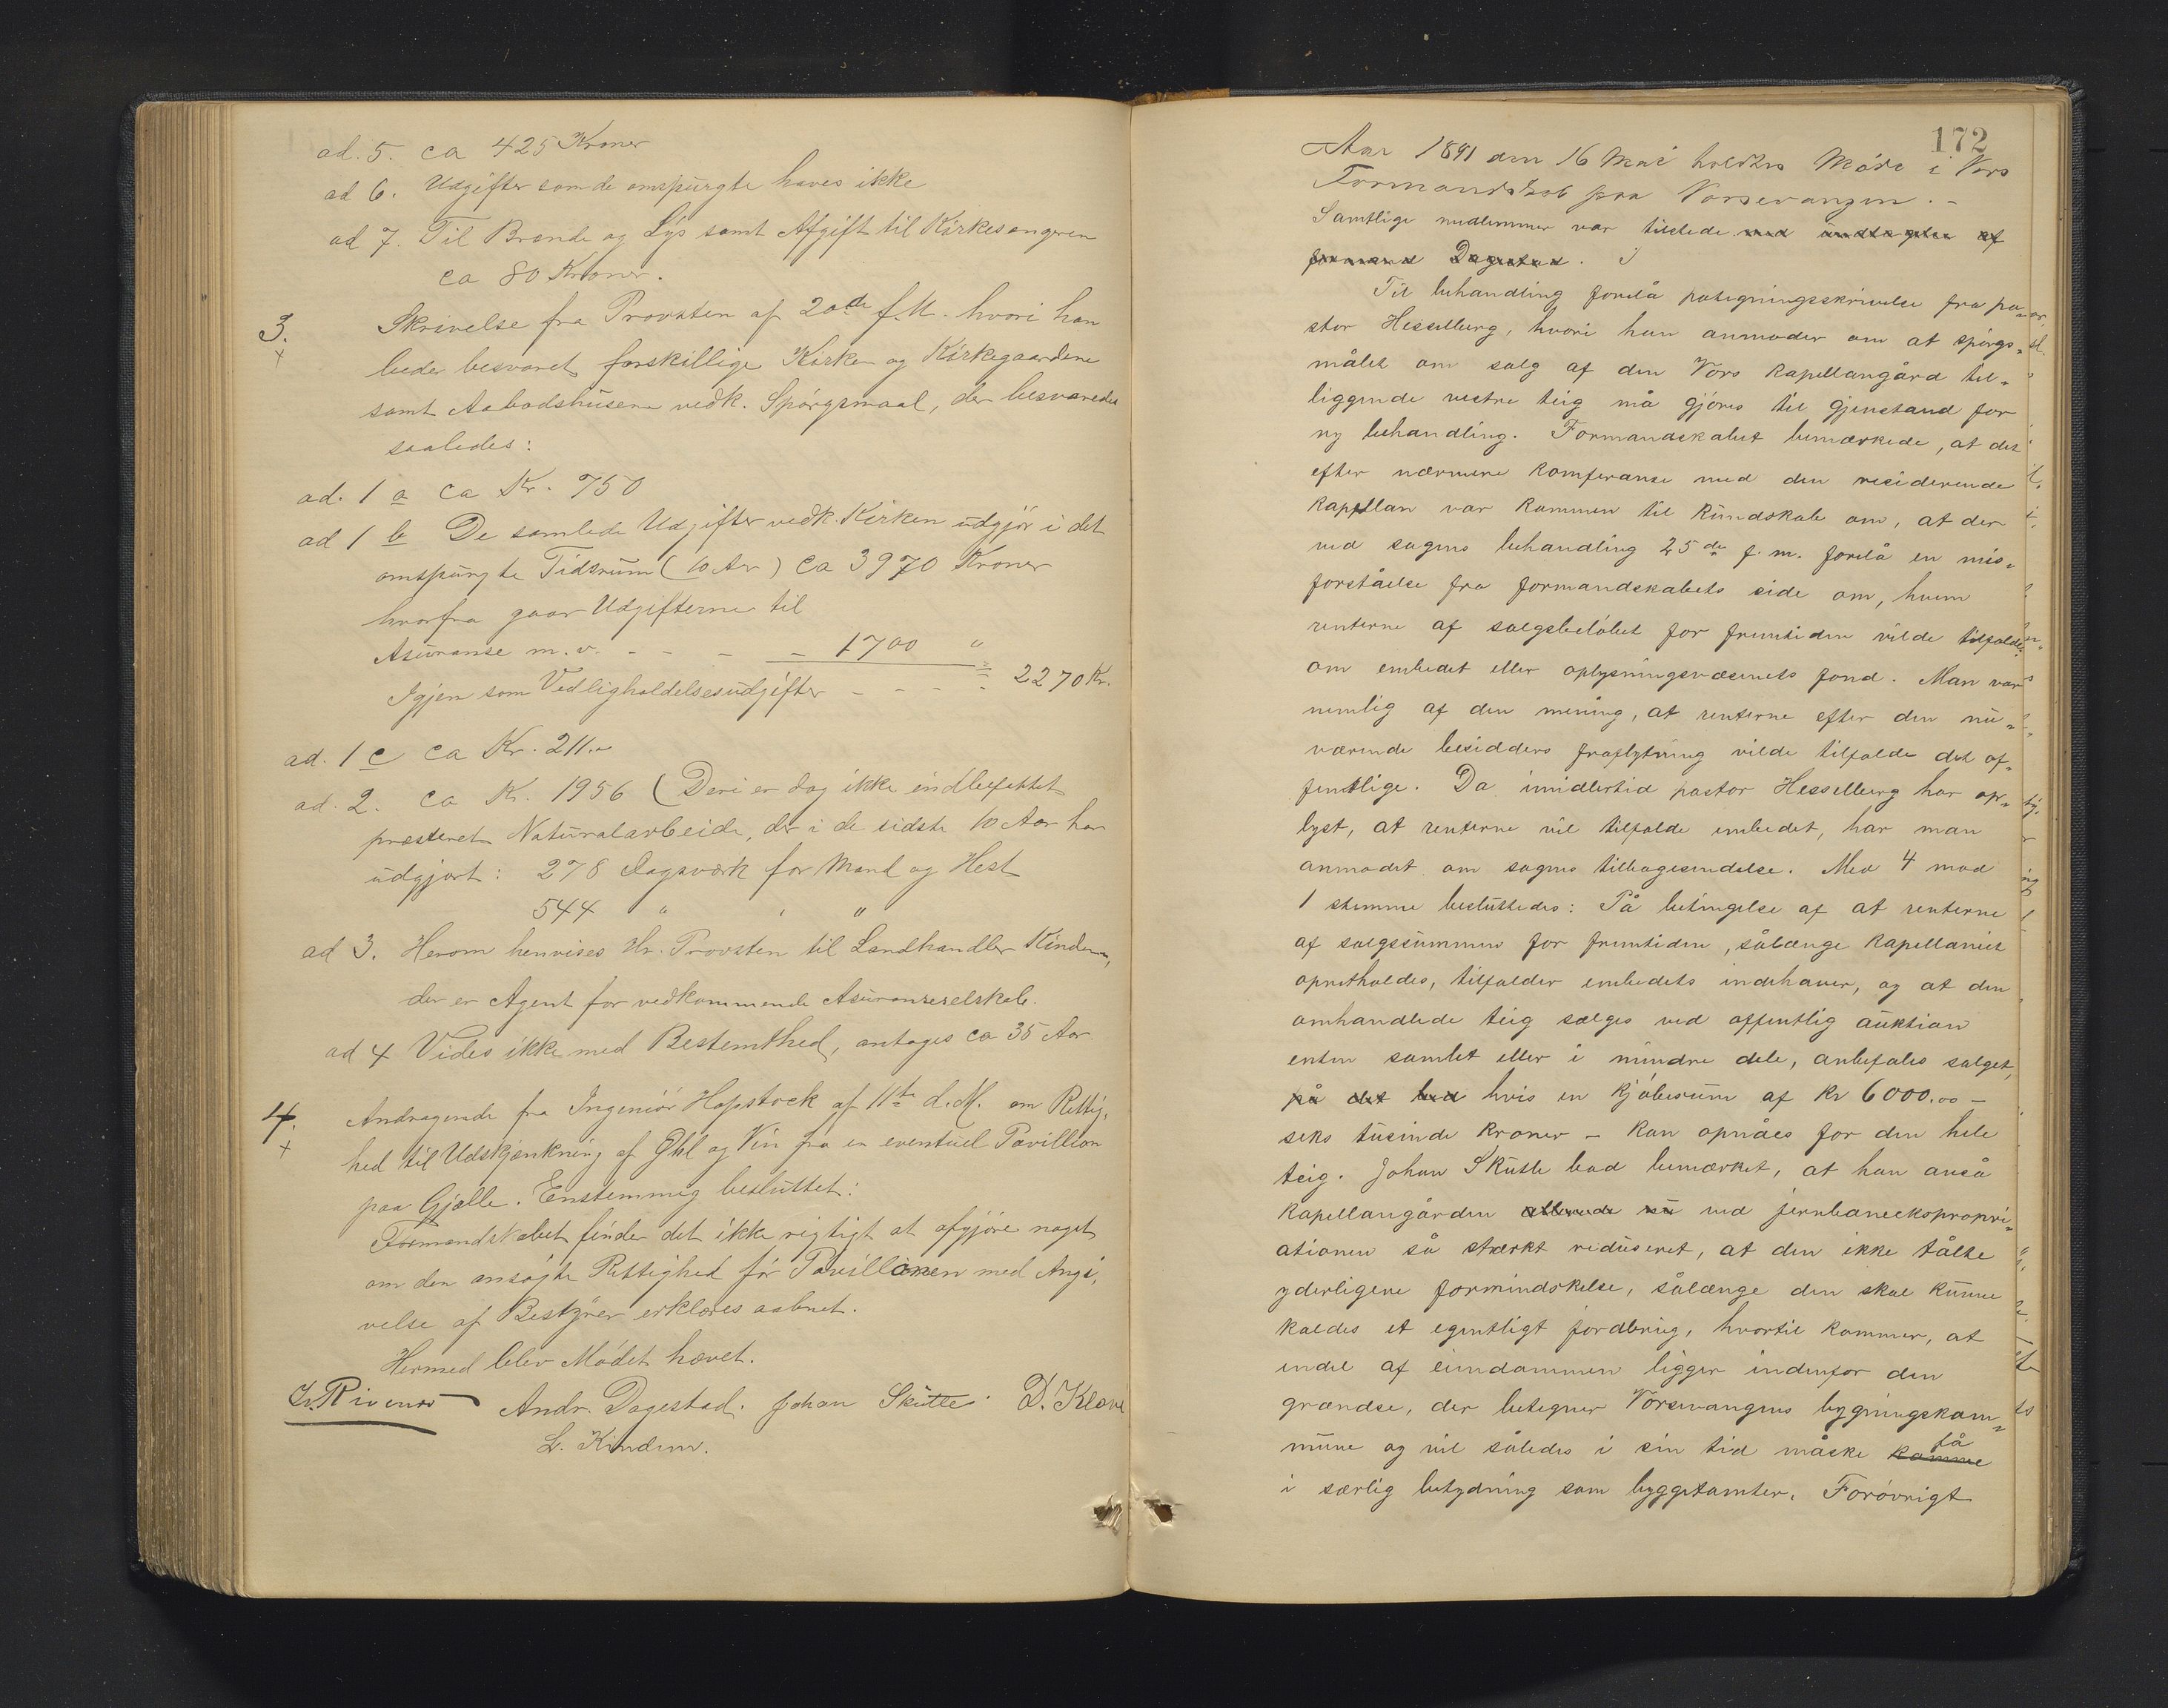 ad. 5. ca 425 Kroner
ad 6. Udgifter som de omspurgte haves ikke
ad 7. Til Brænde og Lys samt Afgift til Kirkesangeren
ca 80 Kroner.
3. Skrivelse fra Provsten af 20de f.M. hvori han
+
beder besvaret forskillige Kirken og Kirkegaardene
samt Aabodshusene vedk. Spørgsmaal, der besvaredes
saaledes:
ad. 1 a ca Kr. 750
ad 1 b De samlede Udgifter vedk. Kirken udgjør i det
omspurgte Tidsrum (10 Aar) ca 3970 Kroner
hvorfra gaar Udgifterne til
Asuranse m.v. - - - - 1700 "
Igjen som Vedligholdelsesudgifter - - - - 2270 Kr.
ad. 1 c ca Kr. 211.
ad. 2. ca Kr. 1956 (Deri er dog ikke indbefattet
præsteret Naturalarbeide, der i de sidste 10 Aar har
udgjort: 278 Dagsværk for Mand og Hest
544 " " "
ad 3. Herom henvises Hr. Provsten til Landhandler Kindem,
der er Agent for vedkommende Asuranseselskab.
ad 4 Vides ikke med Bestemthed, antages ca 35 Aar
4. Andragende fra Ingeniør Hopstock af 11te d.M. om Rettig,
+
hed til Udskjænkning af Øhl og Vin fra en eventuel Pavillion
paa Gjelle. Enstemmig besluttet:
Formandskabet finder det ikke rigtigt at afgjøre noget
om den ansøgte Rettighed før Pavillionen med Angi,
velse af Bestyrer erklæres aabnet.
Hermed blev Mødet hævet.
Andr. Dagestad. Johan Skutle. D. Kløve
L. Kindem.
172
Aar 1891 den 16 Mai holdtes Møde i Vors
Formandskab paa Vossevangen. -
Samtlige medlemmer var tilstede med undtagelse af
formand Dagestad.
Til behandling forelå påtegningsskrivelse fra pa-
stor Hesselberg, hvori han anmoder om at spørgs-
målet om salg af den Vors kapellangård til-
liggende vestre teig må gjøres til gjenstand for
ny behandling. Formandskabet bemærkede, at det
efter nærmere konferanse med den residerende
kapellan var kommen til kundskab om, at der
ved sagens behandling 25de f.m. forelå en mis-
forståelse fra formandskabets side om, hvem
renterne af salgsbeløbet for fremtiden vilde tilfalde,
om embedet eller oplysningsvæsenets fond. Man var
nemlig af den mening, at renterne efter den nu-
værende besidders fraflytning vilde tilfalde det of-
fentlige. Da imidlertid pastor Hesselberg har op-
lyst, at renterne vil tilfalde embedet, har man
anmodet om sagens tilbagesendelse. Med 4 mod
1 stemme besluttedes: På betingelse af at renterne
af salgssummen for fremtiden, sålænge kapellaniet
opretholdes, tilfalder embedets indehaver, og at den
omhandlede teig sælges ved offentlig auktion
enten samlet eller i mindre dele, anbefales salget,
på det bud hvis en kjøbesum af kr 6000.00 -
seks tusinde kroner - kan opnåes for den hele
teig. Johan Skutle bad bemærket, at han anså
kapellangården allerede nu ved jernbaneekspropri-
ationen så stærkt reduseret, at den ikke tålte
yderligere formindskelse, sålænge den skal kunne
kaldes et egentligt jordbrug, hvortil kommer, at
endel af eiendommen ligger indenfor den
grændse, der betegner Vossevangens bygningskom-
mune og vil således i sin tid måske komme få
i særlig betydning som byggetomter. Forøvrigt